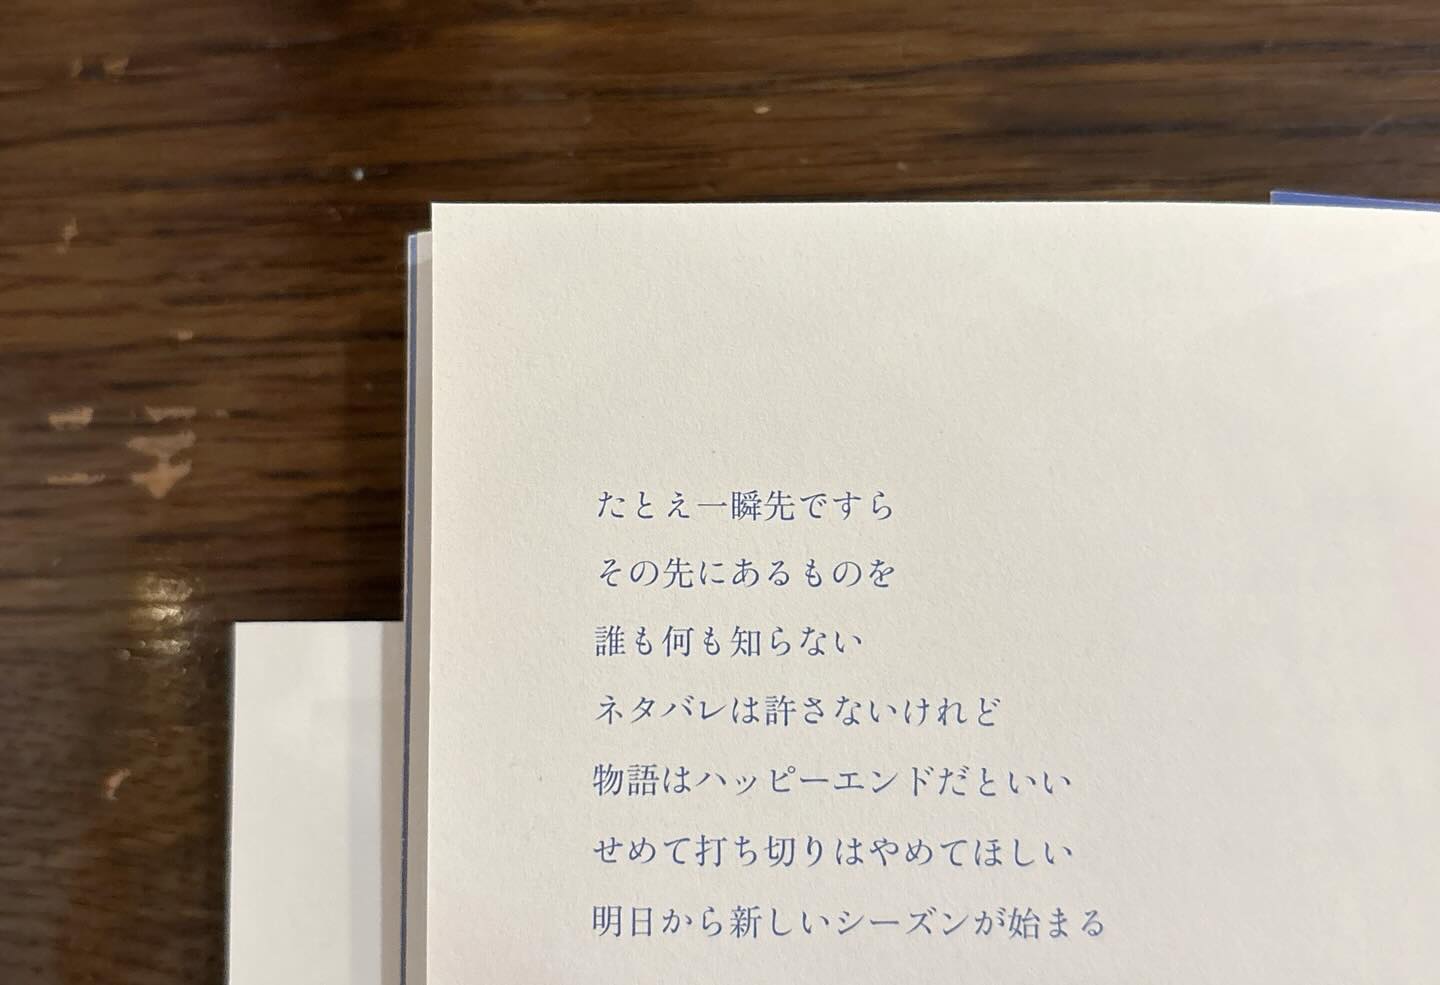 たとえ一瞬先ですら
その先にあるものを
誰も何も知らない
ネタバレは許さないけれど
物語はハッピーエンドだといい
せめて打ち切りはやめてほしい
明日から新しいシーズンが始まる